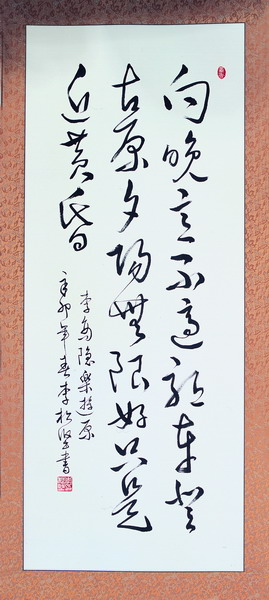 向晚意不適驅車登
古原夕陽無限好只是
近黄昏
李商隐樂遊原
辛卯年春李松書